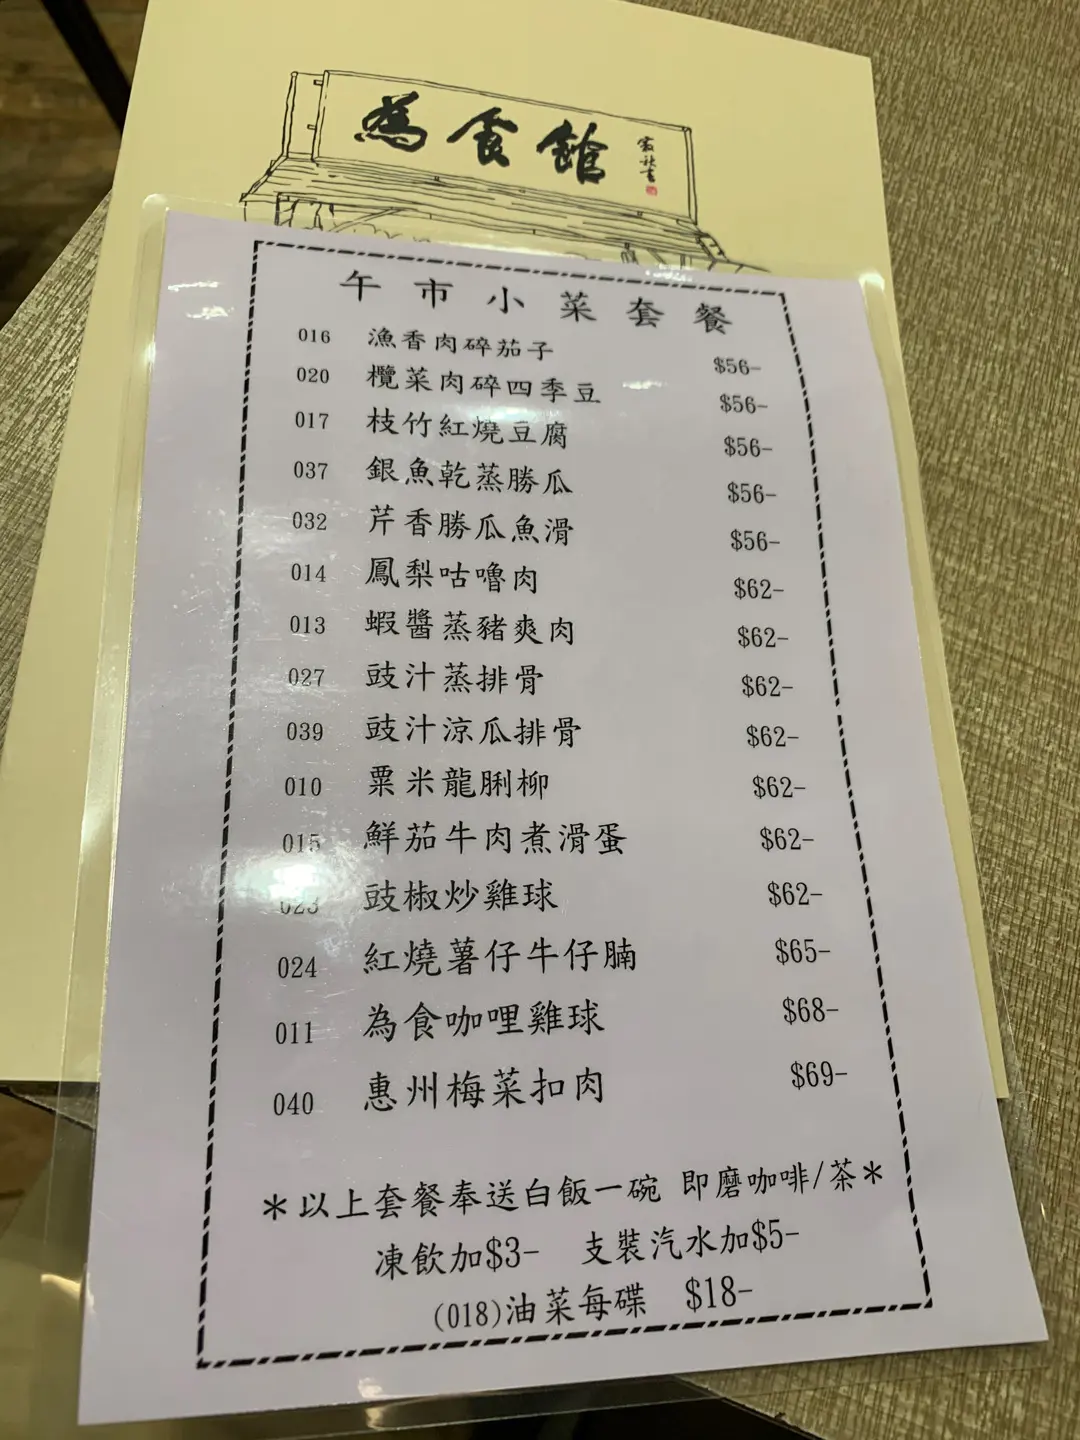 為食館
午市小菜套餐
016 漁香肉碎茄子 $56-
020 欖菜肉碎四季豆 $56-
017 枝竹紅燒豆腐 $56-
037 銀魚乾蒸勝瓜 $56-
032 芹香勝瓜魚滑 $56-
014 鳳梨咕嚕肉 $62-
013 蝦醬蒸豬爽肉 $62-
027 豉汁蒸排骨 $62-
039 豉汁涼瓜排骨 $62-
010 粟米龍脷柳 $62-
015 鮮茄牛肉煮滑蛋 $62-
023 豉椒炒雞球 $62-
024 紅燒薯仔牛仔腩 $65-
011 為食咖哩雞球 $68-
040 惠州梅菜扣肉 $69-
*以上套餐奉送白飯一碗 即磨咖啡/茶*
凍飲加$3- 支裝汽水加$5-
(018)油菜每碟 $18-